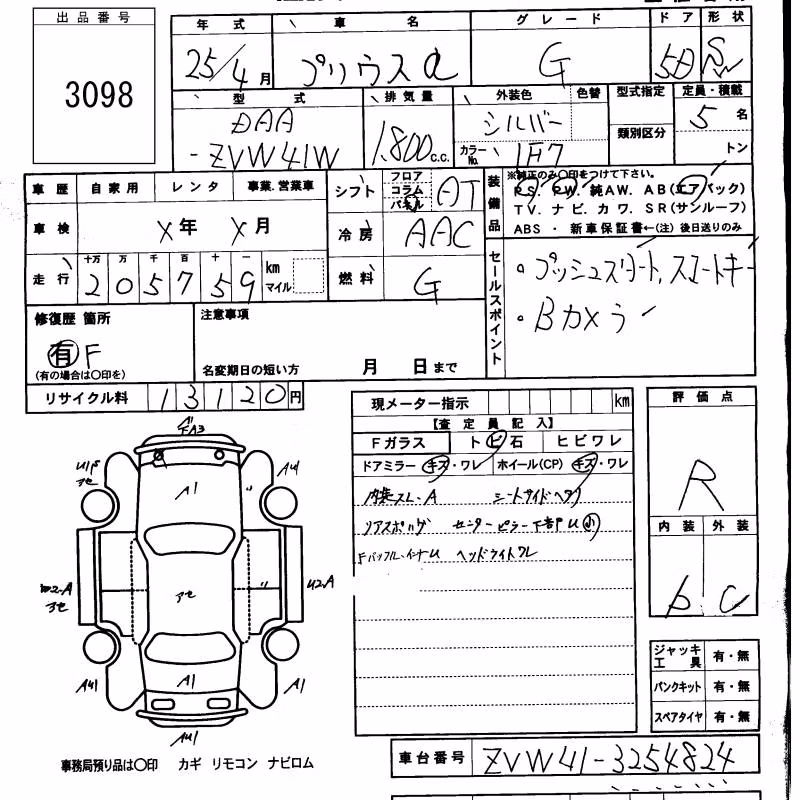 出品番号
3098
年式 車名 グレード ドア 形状
25/4月 プリウスα G 5D SW
型式 排気量 外装色 色替 型式指定 定員・積載
DAA シルバー 5名
-ZVW41W 1,800c.c. カラーNo. 1F7 類別区分 トン
車歴 自家用 レンタ 事業.営業車
車検 X年 X月
走行 十万 万 千 百 十 一 km マイル
205759
シフト フロア コラム パネル AT
冷房 AAC
燃料 G
装備品
※純正のみ○印をつけて下さい。
P.S. P.W. 純AW. AB(エアバック)
TV. ナビ. カワ. SR(サンルーフ)
ABS ・ 新車保証書←(注) 後日送りのみ
セールスポイント
・プッシュスタート,スマートキー
・Bカメラ
修復歴 箇所
有 F
(有の場合は○印を)
注意事項
名変期日の短い方 月 日まで
リサイクル料 13120円
現メーター指示 km
【査定員記入】
Fガラス トビ石 ヒビワレ
ドアミラー キズ・ワレ ホイール(CP) キズ・ワレ
内装スレ・A シートサイドヘタリ
リアスポキズ センターピラー下部U小
Fバッフル・インナU ヘッドライトワレ
評価点
R
内装 外装
b C
ジャッキ工具 有・無
パンクキット 有・無
スペアタイヤ 有・無
FA3
A1
A4
アセ
U2-A
アセ
A1
A1
事務局預り品は○印 カギ リモコン ナビロム
車台番号 ZVW41-3254824